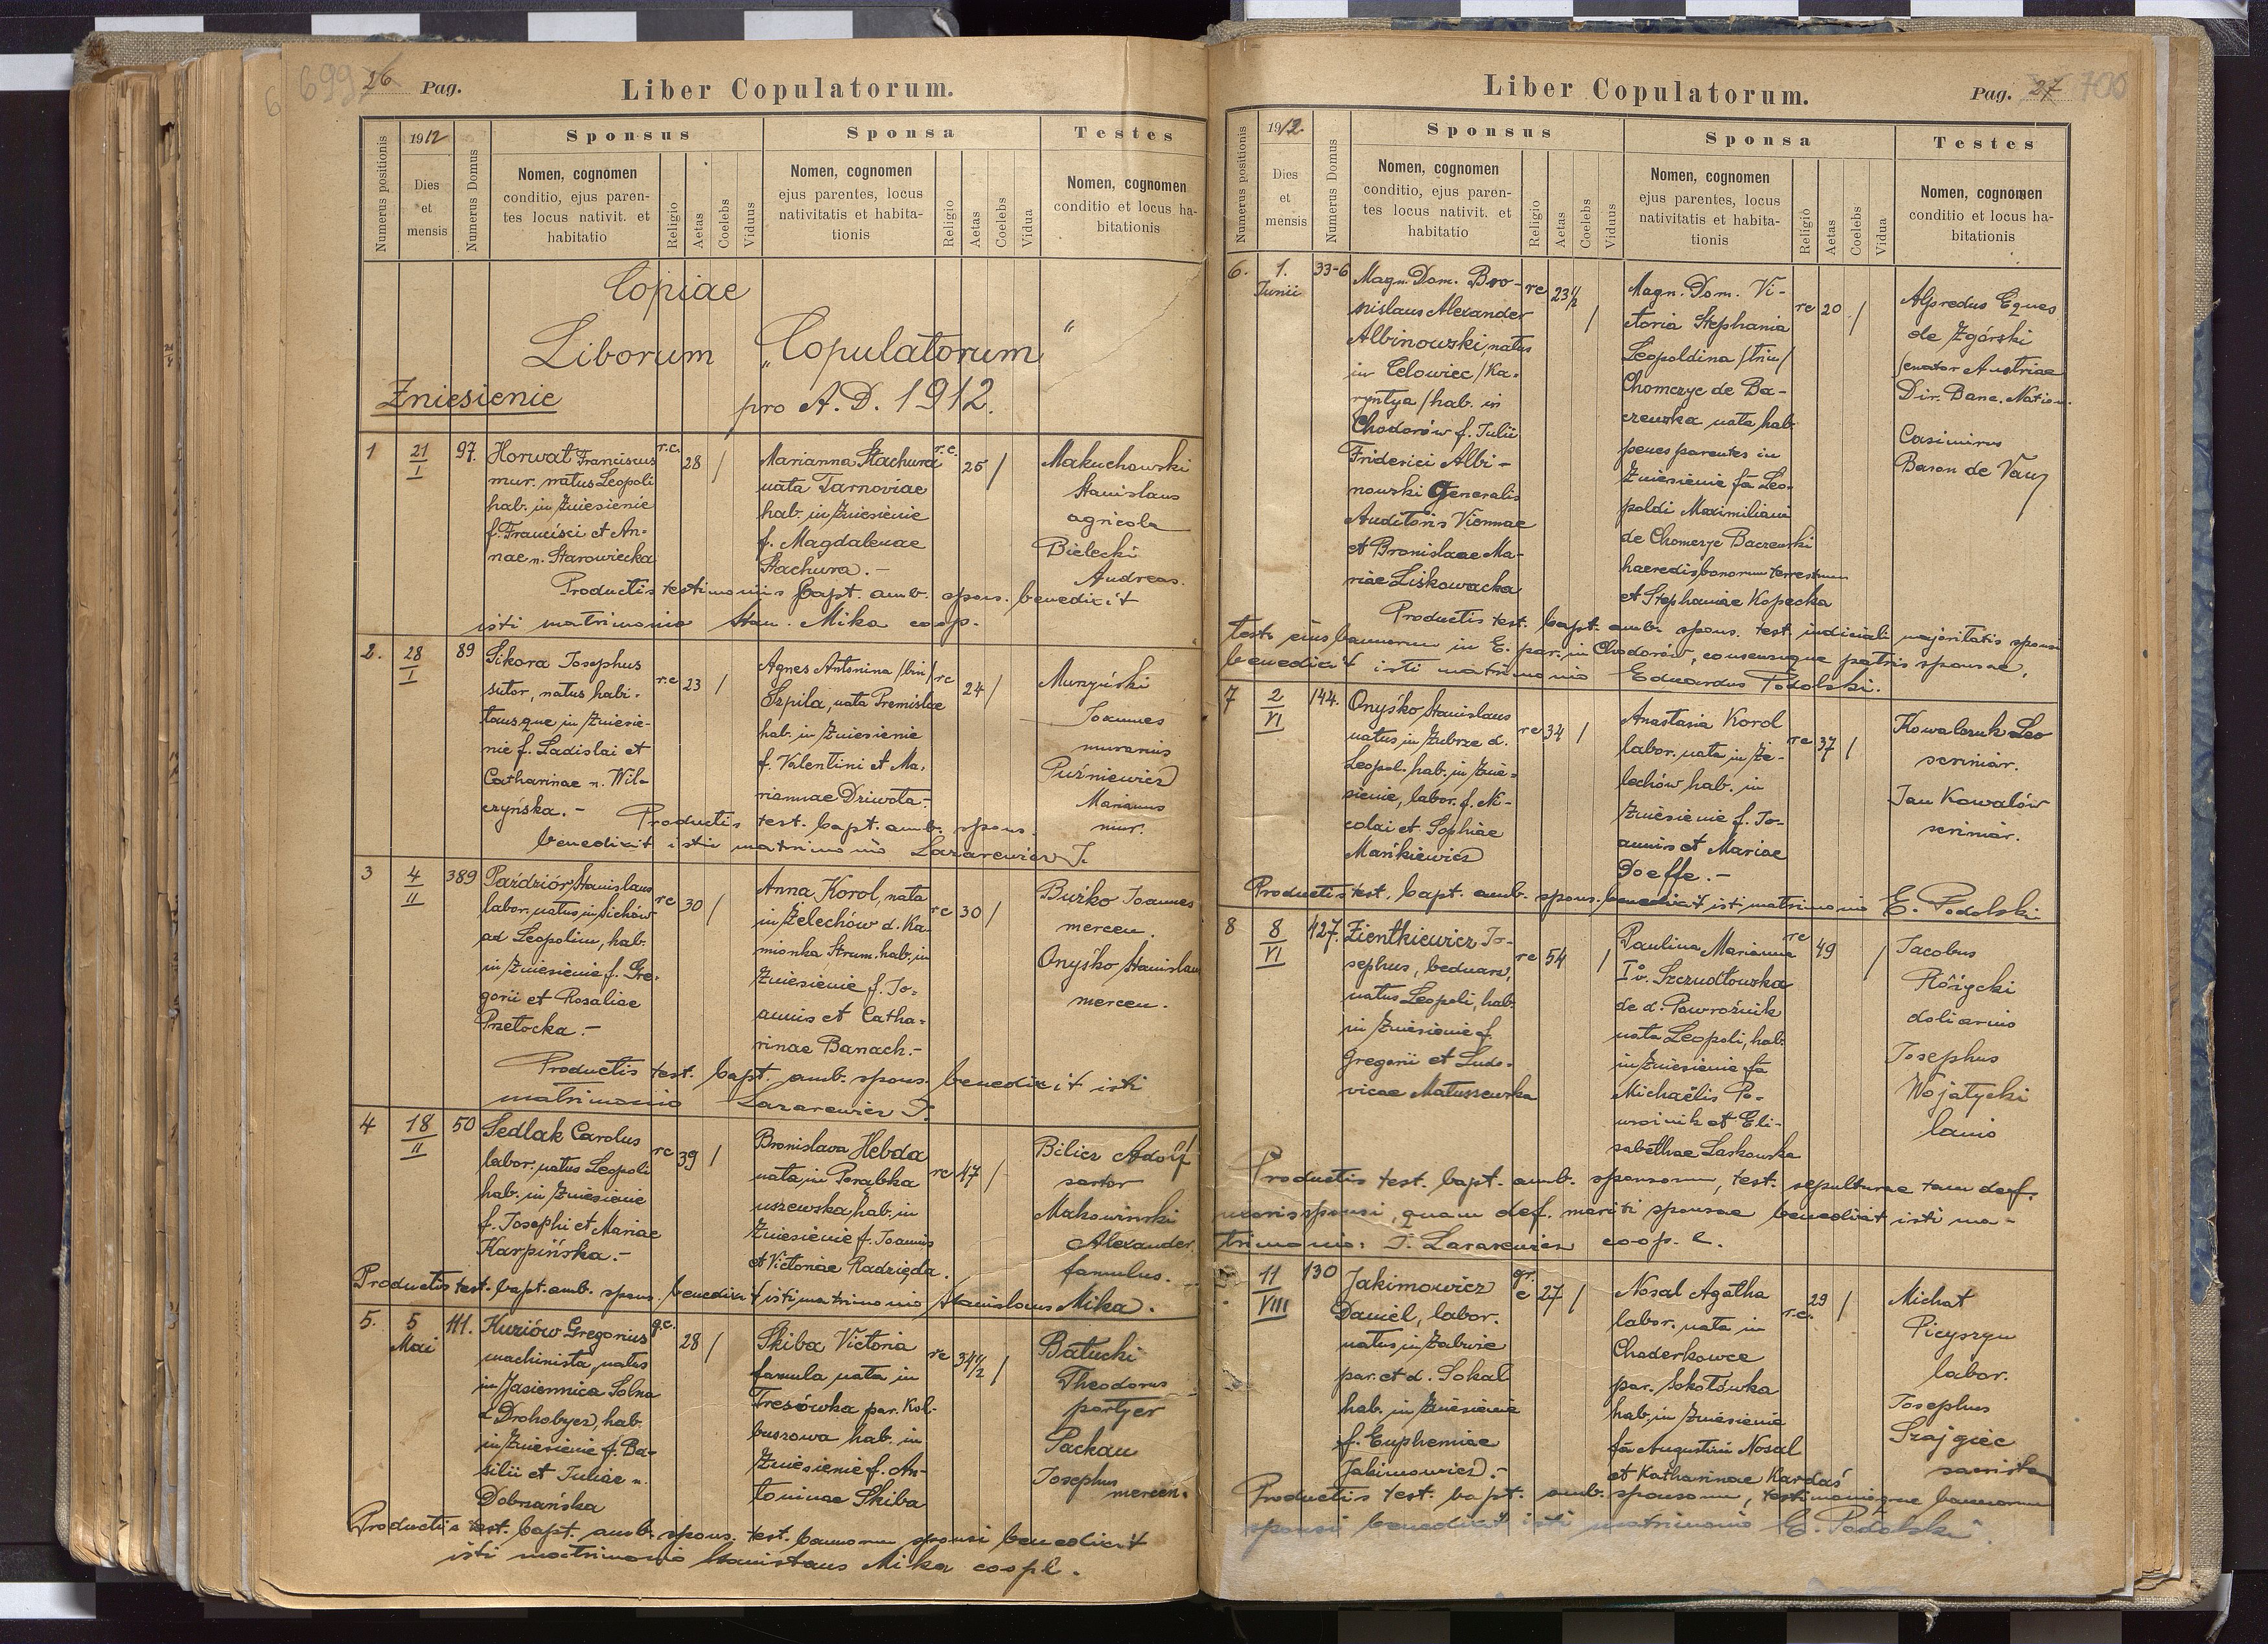 699 26 Pag. Liber Copulatorum.
Numerus positionis
1912
Dies
et
mensis
Numerus Domus
Sponsus
Nomen, cognomen
conditio, ejus paren-
tes locus nativit. et
habitatio
Religio
Aetas
Coelebs
Viduus
Sponsa
Nomen, cognomen
ejus parentes, locus
nativitatis et habita-
tionis
Religio
Aetas
Coelebs
Vidua
Testes
Nomen, cognomen
conditio et locus ha-
bitationis
Copiae
Liborum „Copulatorum“
Zniesienie pro A. D. 1912.
1 21/I 97.
Horwat Franciscus
mur. natus Leopoli
hab. in Zniesienie
f. Francisci et An-
nae n. Starowiecka
r.c. 28 /
Marianna Stachura
nata Tarnoviae
hab. in Zniesienie
f. Magdalenae
Stachura.-
r.c. 25 /
Makuchowski
Stanislaus
agricola
Bielecki
Andreas.
Productis testimoniis bapt. amb. spons. benedixit
isti matrimonio Stan. Mika coop.
2. 28/I 89
Sikora Josephus
sutor, natus habi-
tansque in Zniesie-
nie f. Ladislai et
Catharinae n. Wil-
czyńska.-
r.c 23 /
Agnes Antonina /bin/
Szpila, nata Premisliae
hab. in Zniesienie
f. Valentini et Ma-
riannae Dziwota.-
rc 24 /
Munyński
Joannes
murarius
Puźniewicz
Marianus
mur.
Productis test. bapt. amb. spons.
benedixit isti matrimonio Lazarewicz J.
3 4/II 389
Paździór Stanislaus
labor. natus in Sichów
ad Leopolim, hab.
in Zniesienie f. Gre-
gorii et Rosaliae
Przetocka.-
rc 30 /
Anna Korol, nata
in Żelechów d. Ka-
mionka Strum. hab. in
Zniesienie f. Jo-
annis et Catha-
rinae Banach.-
rc 30 /
Buźko Joannes
mercen.
Onyśko Stanislaus
mercen.
Productis test. bapt. amb. spons. benedixit isti
matrimonio Lazarewicz J.
4 18/II 50
Sedlak Carolus
labor. natus Leopoli
hab. in Zniesienie
f. Josephi et Mariae
Karpińska.-
rc 39 /
Bronislava Hebda
nata in Porąbka
uszewska hab. in
Zniesienie f. Joannis
et Victoriae Radzięda.
rc 47 /
Bilicz Adolf
sartor
Makowinski
Alexander
famulus.
Productis test. bapt. amb. spons. benedixit isti matrimonio Stanislaus Mika.
5. 5 Mai 111.
Kuziów Gregorius
machinista, natus
in Jasiennica Solna
d Drohobycz, hab.
in Zniesienie f. Ba-
silii et Juliae n.
Dobrzańska
g.c. 28 /
Skiba Victoria
famula nata in
Tresówka par. Kol-
buszowa hab. in
Zniesienie f. An-
toninae Skiba
rc 34 1/2 /
Batucki
Theodorus
portyer
Packau
Josephus
mercen.
Productis test. bapt. amb. spons. test. bannorum sponsi benedixit
isti matrimonio Stanislaus Mika coop.
Liber Copulatorum. Pag. 27 700
Numerus positionis
1912
Dies
et
mensis
Numerus Domus
Sponsus
Nomen, cognomen
conditio, ejus paren-
tes locus nativit. et
habitatio
Religio
Aetas
Coelebs
Viduus
Sponsa
Nomen, cognomen
ejus parentes, locus
nativitatis et habita-
tionis
Religio
Aetas
Coelebs
Vidua
Testes
Nomen, cognomen
conditio et locus ha-
bitationis
6. 1. Junii 33-6
Magn. Dom. Bro-
nislaus Alexander
Albinowski, natus
in Celowiec /Ka-
ryntya/ hab. in
Chodorów f. Julii
Friderici Albi-
nowski Generalis
Auditoris Viennae
et Bronislaae Ma-
riae Liskowacka
rc 23 1/2 /
Magn. Dom. Vi-
ctoria Stephania
Leopoldina /trin/
Chomczyc de Ba-
czewska nata hab.
penes parentes in
Zniesienie fa Leo-
poldi Maximiliani
de Chomczyc Baczewski
haeredis bonorum terrestrium
et Stephaniae Kopecka
rc 20 /
Alfredus Eques
de Zgórski
senator Austriae
Dir. Banc. Nation.
Casimirus
Baron de Vaux
Productis test. bapt. amb. spons. test. judiciali majoritatis sponsi
benedixit isti matrimonio Eduardus Podolski.
7 2/VI 144.
Onyśko Stanislaus
natus in Zubrze d.
Leopol. hab. in Znie-
sienie, labor. f. Ni-
colai et Sophiae
Mańkiewicz
rc 34 /
Anastasia Korol
labor. nata in Że-
lechów hab. in
Zniesienie f. Jo-
annis et Mariae
Doeffe.-
rc 37 /
Kowalczuk Leo
scriniar.
Jan Kowalów
scriniar.
Productis test. bapt. amb. spons. benedixit isti matrimonio E. Podolski
8 8/VI 127.
Zientkiewicz Jo-
sephus, bednarz,
natus Leopoli, hab.
in Zniesienie f.
Gregorii et Ludo-
vicae Matuszewska
rc 54 /
Paulina Marianna
I v. Szczudłowska
de d. Powroźnik
nata Leopoli, hab.
in Zniesienie fa
Michaëlis Po-
wroźnik et Eli-
sabethae Laskowska
rc 49 /
Jacobus
Różycki
doliarius
Josephus
Wojatycki
lanio
Productis test. bapt. amb. sponsorum, test. sepulturae tam def.
uxoris sponsi, quam def. mariti sponsae benedixit isti ma-
trimonio: J. Lazarewicz coop. e.
11/VIII 130
Jakimowicz
Daniel, labor.
natus in Zabuże
par. et d. Sokal
hab. in Zniesienie
f. Euphemiae
Jakimowicz.-
gr. c 27 /
Nosal Agatha
labor. nata in
Choderkowce
par. Sokołówka
hab. in Zniesienie
fa Augustini Nosal
et Katharinae Kardaś
r.c. 29 /
Michał
Picyszyn
labor.
Josephus
Szajgiec
sacrista
Productis test. bapt. amb. sponsorum, testimonioque bannorum
sponsi benedixit isti matrimonio E. Podolski.